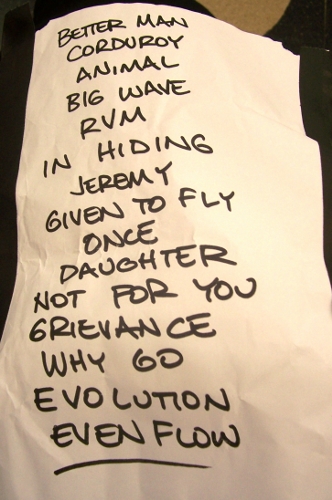 BETTER MAN
CORDUROY
ANIMAL
BIG WAVE
RVM
IN HIDING
JEREMY
GIVEN TO FLY
ONCE
DAUGHTER
NOT FOR YOU
GRIEVANCE
WHY GO
EVOLUTION
EVEN FLOW